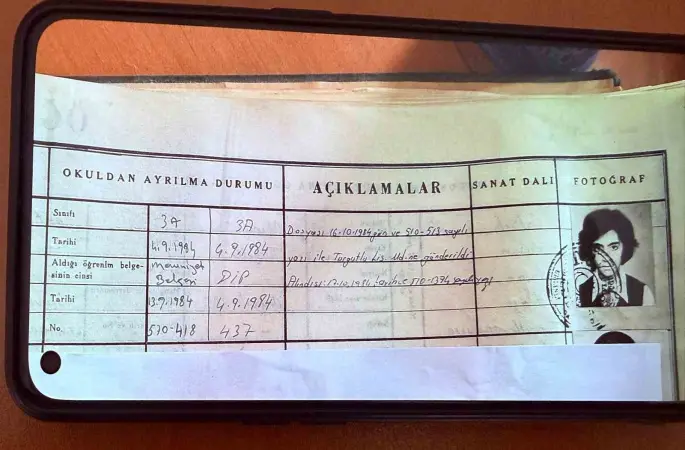 OKULDAN AYRILMA DURUMU AÇIKLAMALAR SANAT DALI FOTOĞRAF
Sınıfı 3A 3A
Dosyası 16-10-1984 gün ve 510-513 sayılı
Tarihi 4.9.1984 4.9.1984
yazı ile Turgutlu Lis. Md. ne gönderildi
Aldığı öğrenim belge-
sinin cinsi Mezuniyet Belgesi DİP
Alındısı: 17.10.1984 tarih ve 510-1394
Tarihi 13.9.1984 4.9.1984
No. 570-418 437